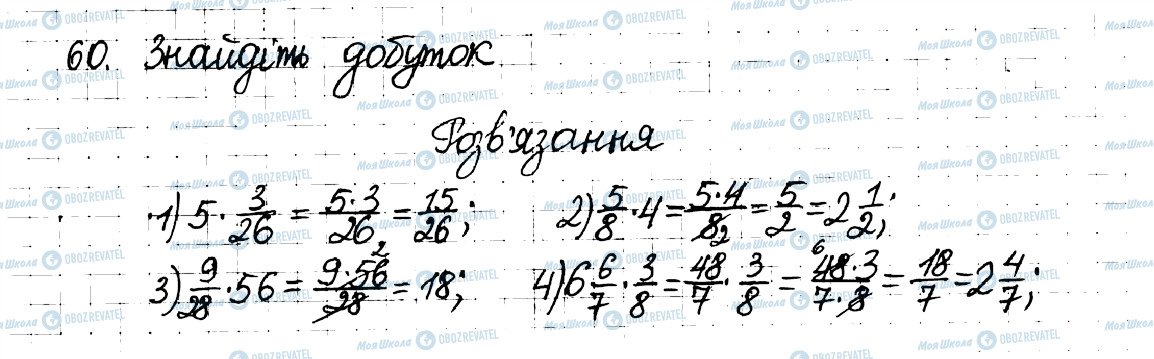 60. Знайдіть добуток
Розв'язання
1) 5 · 3/26 = 5·3/26 = 15/26; 2) 5/8 · 4 = 5·4/8 2 = 5/2 = 2 1/2;
3) 9/28 · 56 = 9·56 2/28 = 18; 4) 6 6/7 · 3/8 = 48/7 · 3/8 = 6 48·3/7·8 = 18/7 = 2 4/7;